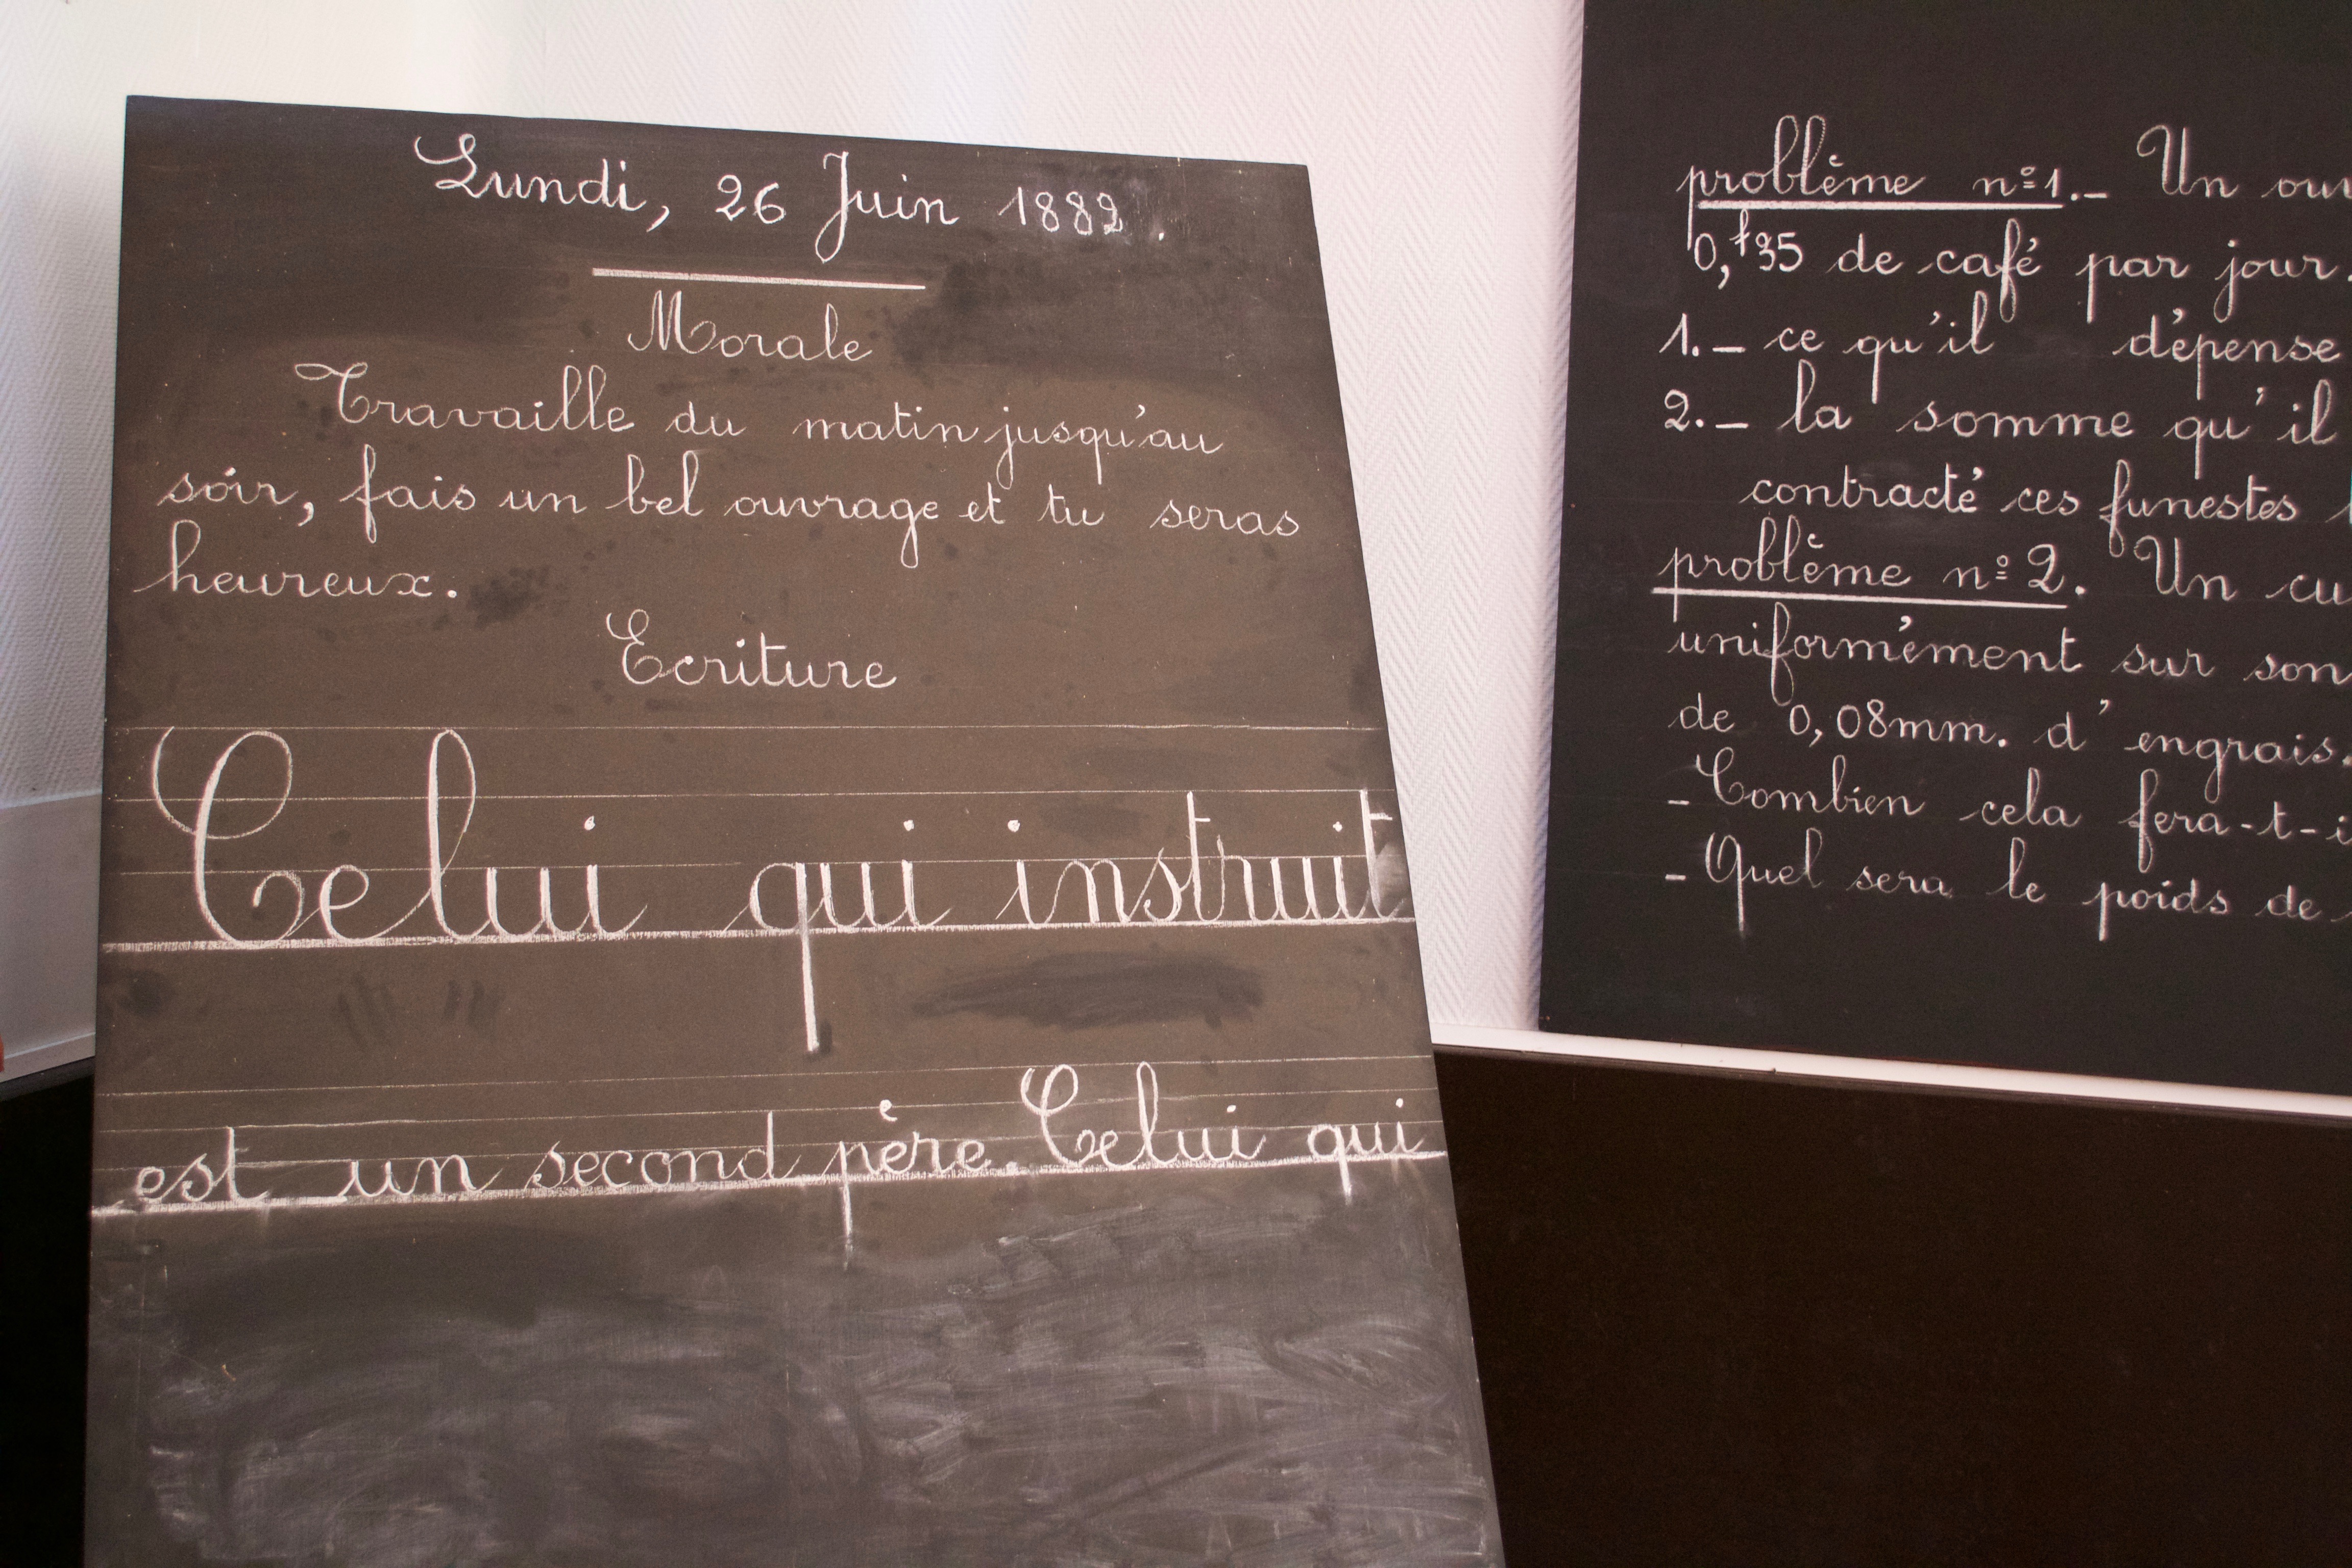 Lundi, 26 Juin 1882.
Morale
Travaille du matin jusqu'au
soir, fais un bel ouvrage et tu seras
heureux.
Ecriture
Celui qui instruit
est un second père. Celui qui
problème n°1._ Un
0,f35 de café par jour.
1._ ce qu'il dépense
2._ la somme qu'il
contracté ces funestes
problème n° 2. Un
uniformément sur son
de 0,08mm. d'engrais.
- Combien cela fera-t-i
- Quel sera le poids de